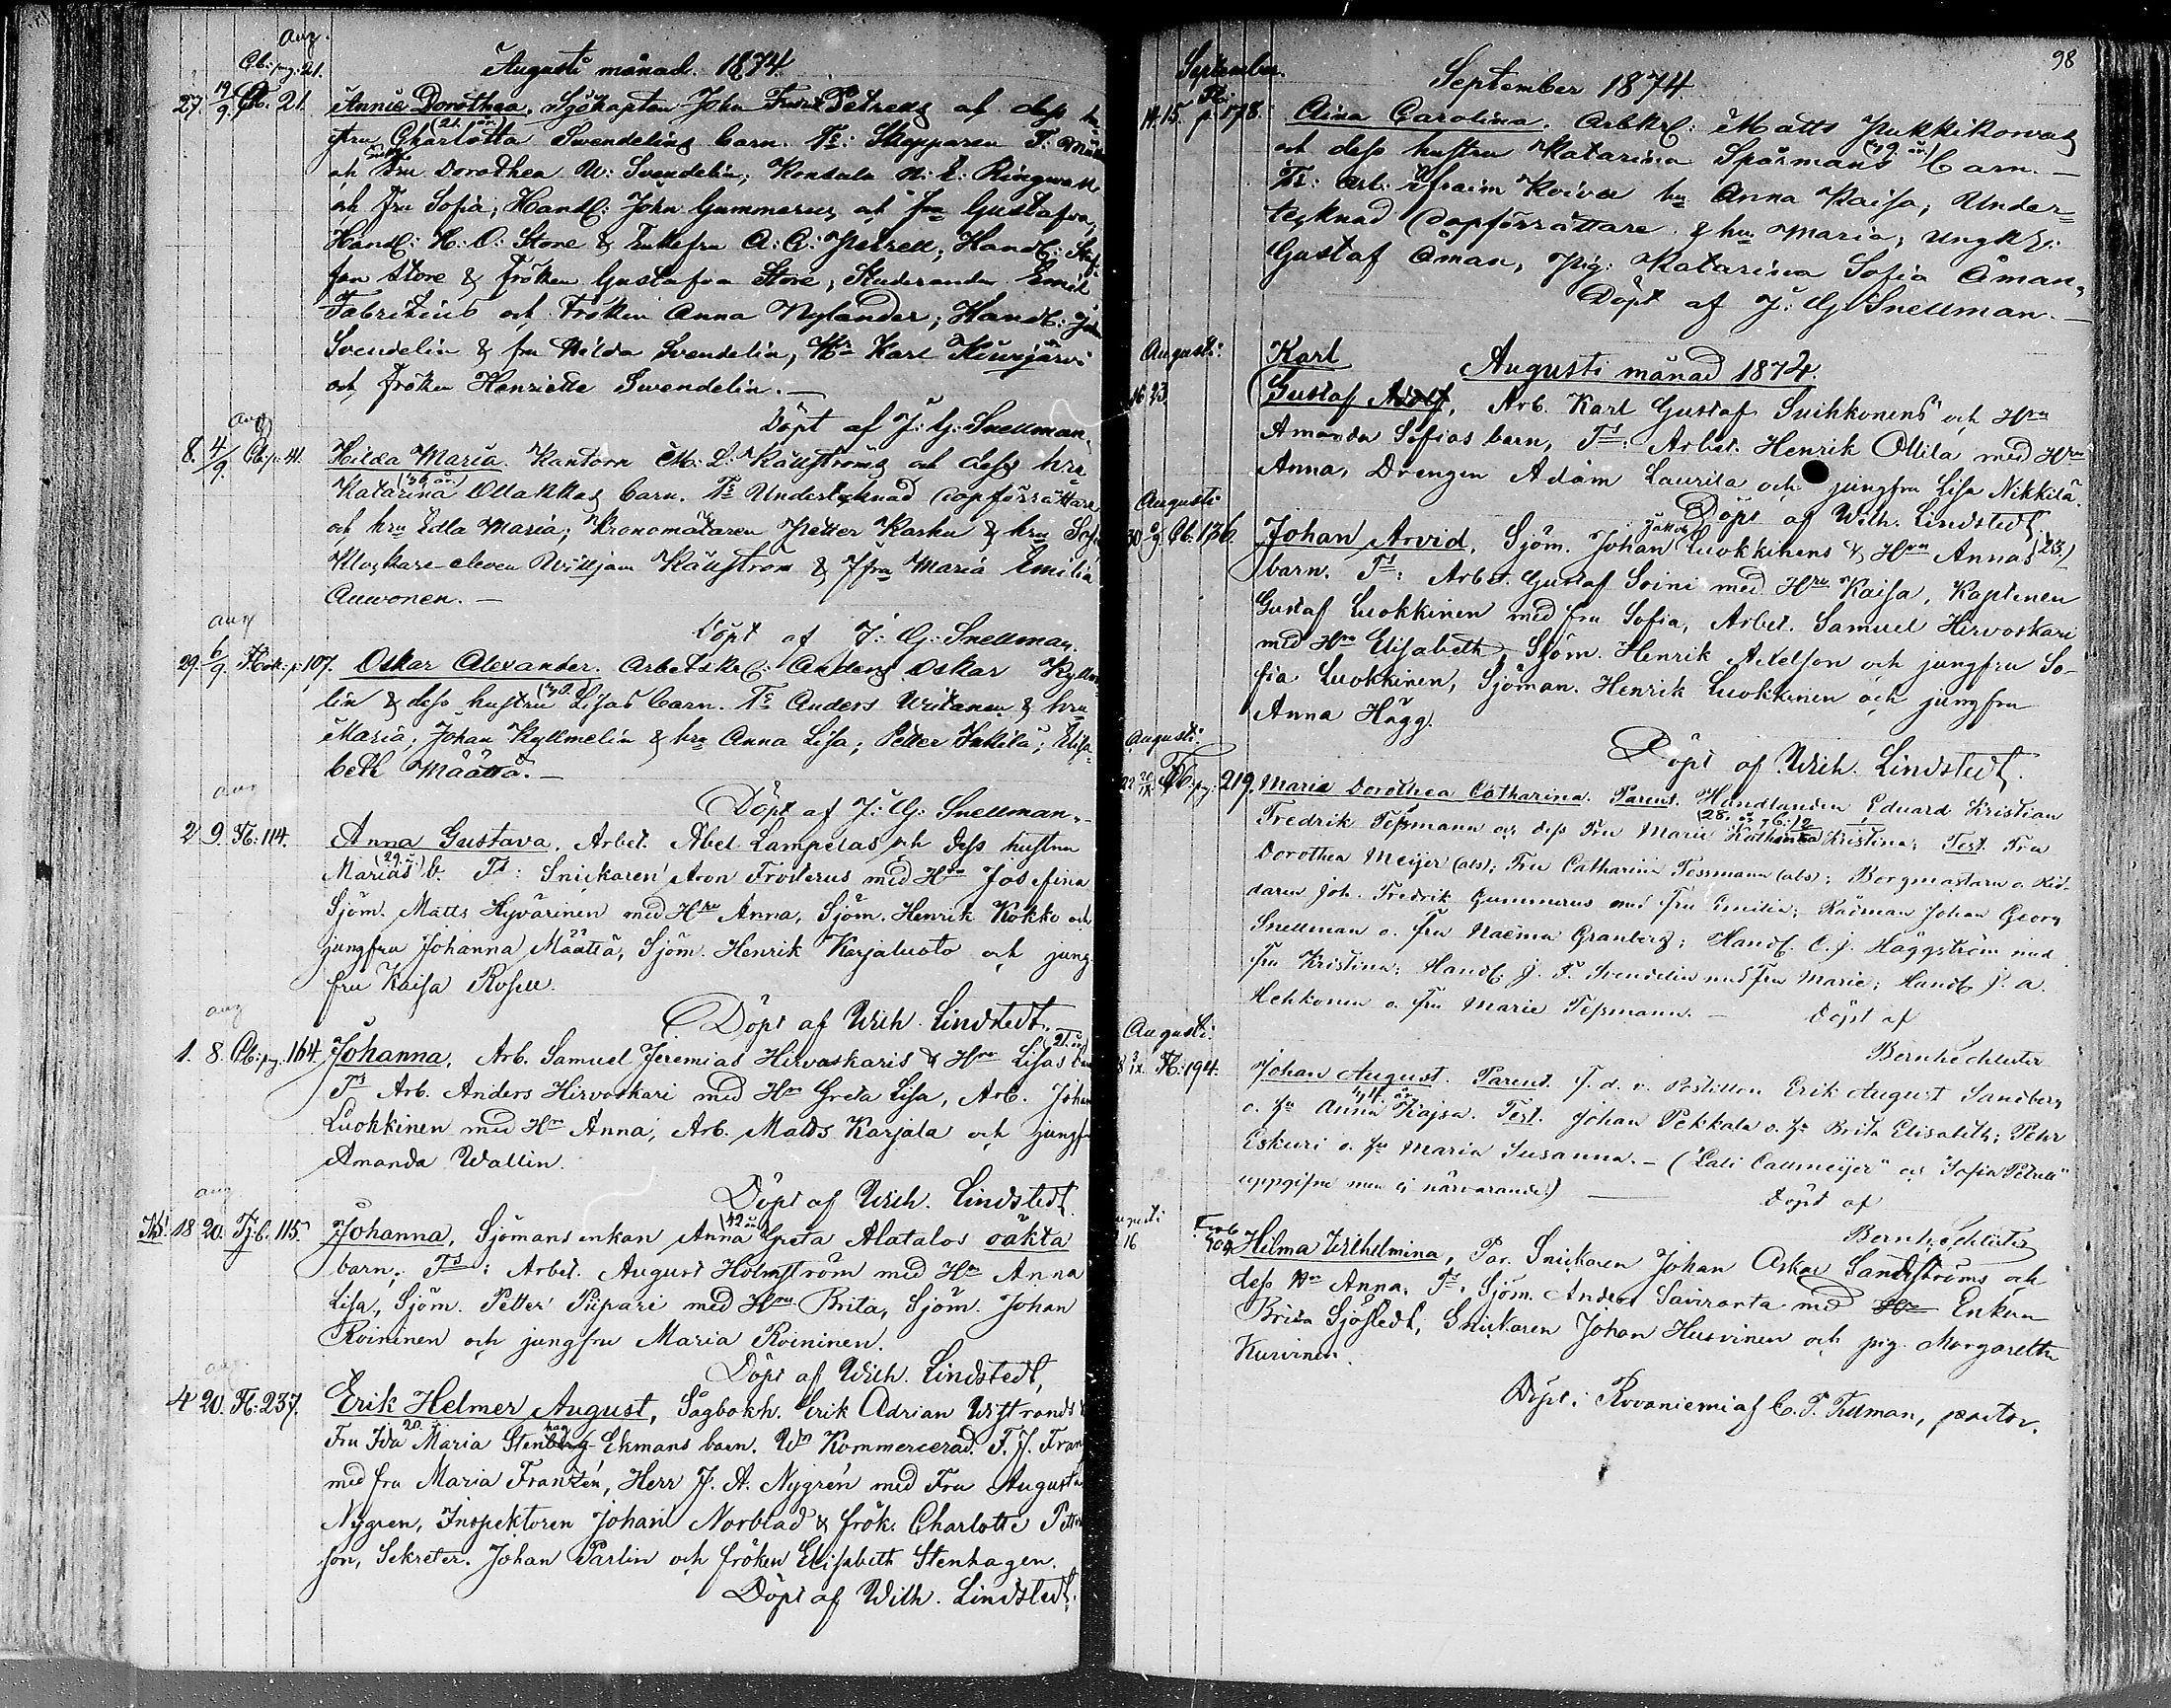 Aug.
Cb: pag: 21.
Augusti månad. 1874.
27. 19/9. Cb. 21. Annie Dorothea, Sjökapten John Petrells af dess
(21. år.)
Charlotta Swendelins barn. Ts: Skepparen
och Fru Dorothea U: Svendelin, Konsuln Ringwall
och Fru Sofia, Handl: John Gummerus och Fru Gustafva,
Handl: H: O: Stone & Enkefru A: G: Petrell, Handl:
fan Stone & fröken Gustafva Stone, Studeranden Emil
Fabritius och Fröken Anna Nylander; Handl:
Svendelin & fru Hilda Svendelin, Karl
och fröken Henriette Swendelin. —
Döpt af J: G: Snellman.
aug
8. 4/9. Cb: p: 41. Hilda Maria. Kantorn M: L: Källströms och dess hru
Katarina Ollakkas barn. Ts Undertecknad dopförrättare
och hru Edla Maria; Kronomätaren Petter Karhu & hru
Klockare eleven Willijam Källström & Jfru Maria Emilia
Auwonen. —
Döpt af J: G: Snellman.
aug
29. 6/9. p. 107. Oskar Alexander. Arbetskrl: Anders Oskar
lin & dess hustru Lisas barn. Ts Anders & hru
Maria; Johan Kyllmelin & hru Anna Lisa; Petter Inkilä; Elisa-
beth Määttä. —
Döpt af J: G: Snellman. —
aug
2 9. Fl: 114. Anna Gustava, Arbet. Abel Lampelas och dess hustru
(29. å.)
Marias b. Ts: Snickaren Aron Frosterus med Hru Josefina
Sjöm. Matts Hyvärinen med Hru Anna, Sjöm. Henrik Kokko och
jungfru Johanna Määttä, Sjöm. Henrik Karjaluoto och jung-
fru Kaisa Rosell.
Döpt af Wilh. Lindstedt.
aug
1. 8. Cb: pg. 164. Johanna, Arb. Samuel Jeremias Hirvaskaris & Hru Lisas
Ts Arb. Anders Hirvaskari med Hru Greta Lisa, Arb. Johan
Luokkinen med Hru Anna, Arb. Matts Karjala och jungfr
Amanda Wallin.
Döpt af Wilh. Lindstedt.
aug.
18 20. 115. Johanna, Sjömans enkan Anna Greta Alatalos oäkta
(42 år)
barn; Ts: Arbet. August Holmström med Hru Anna
Lisa, Sjöm. Petter Piipari med Hru Brita, Sjöm. Johan
Roininen och jungfru Maria Roininen.
Döpt af Wilh. Lindstedt,
aug.
4 20. Fl: 237. Erik Helmer August, Sågbokh. Erik Adrian
Fru Ida Maria Ekmans barn. Kommerceråd. F. J. Fran
med fru Maria Franzén, Herr J. A. Nygrén med Fru Augusta
Nygren, Inspektoren Johan Norblad & frök. Charlotte Petter
son, Sekreter. Johan Parlin och fröken Elisabeth Stenhagen.
Döpt af Wilh. Lindstedt.
98
September.
September 1874.
14. 15. p. 178. Aina Carolina. Arbkrl: Matts
och dess hustru Katarina Spårmans barn. —
Ts: Arb: Efraim Koiva hu Anna Kaisa; Under-
tecknad dopförrättare & hru Maria; Ungk:
Gustaf Åman, Pig: Katarina Sofia Åman,
Döpt af J: G: Snellman. —
Augusti: Karl Augusti månad 1874.
16 23. Gustaf Adolf, Arb. Karl Gustaf Suihkonens och Hru
Amanda Sofias barn, Ts: Arbet. Henrik Ollila med Hru
Anna, Drengen Adam Laurila och jungfru Lisa Nikkilä.
Augusti Döpt af Wilh. Lindstedt.
30 Cb: 136. Johan Arvid, Sjöm. Johan Jakob Luokkinens & Hru Annas (23.)
barn. Ts: Arbet. Gustaf Soini med Hru Kaisa, Kaptenen
Gustaf Luokkinen med fru Sofia, Arbet. Samuel Hirvaskari
med Hru Elisabeth, Sjöm. Henrik Axelson och jungfru So-
fia Luokkinen, Sjöman. Henrik Luokkinen och jungfru
Anna Hägg.
Augusti: Döpt af Wilh. Lindstedt.
22 20/IX pg: 219. Maria Dorothea Catharina. Parent. Handlanden Eduard Kristian
Fredrik Tessmann och dess Fru Marie Kristina; Test. Fru
Dorothea Meijer (abs); Fru Catharina Tessmann (abs); Borgmästarn o. Rid-
daren Joh. Fredrik Gummerus med fru Emilia; Rådman Johan Georg
Snellman o. Fru Naëma Granberg; Handl. C. J. Häggström med
Fru Kristina; Handl. J. F. Svendelin med Fru Marie; Handl J. A.
Hehkonen o. Fru Marie Tessmann. — Döpt af
Augusti:
8 3/IX. Fl: 194. Johan August. Parent. F. d. v. Postillon Erik August Sandberg
o. hu Anna Kajsa. Test. Johan Pekkala o. hu Brita Elisabeth; Petter
Eskuri o. hu Maria Susanna. — ("Lali Callmeijer" och "Sofia Petrell"
uppgifne men ej närvarande.) — Döpt af
Augusti
16 Hilma Wilhelmina, Par. Snickaren Johan Oskar Sandströms och
dess Hru Anna. Ts. Sjöm. Anders Saviranta med Enkan
Brita Sjöstedt, Snickaren Johan Husvinen och pig. Margaretha
Kurvinen.
Döpt i Rovaniemi af C. F. Tillman, pastor.